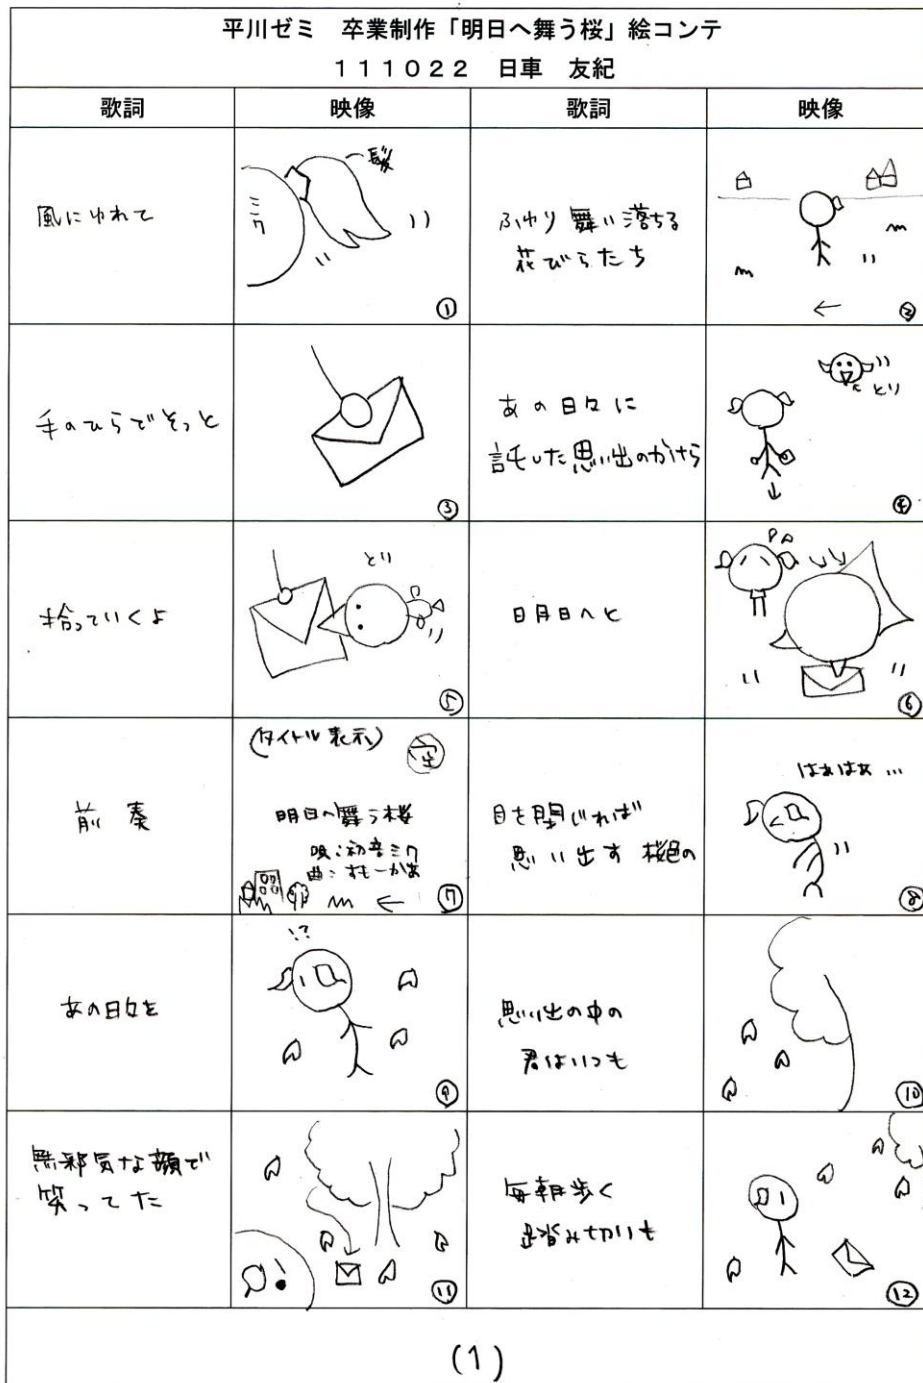 平川ゼミ 卒業制作「明日へ舞う桜」絵コンテ
111022 日車 友紀
歌詞 映像 歌詞 映像
風にゆれて
髪
ミク
①
ふわり舞い落ちる
花びらたち
②
手のひらでそっと
③
あの日々に
託した思い出のかけら
とり
④
拾っていくよ
とり
⑤
明日へと
⑥
前奏
(タイトル表示)
空
明日へ舞う桜
唄:初音ミク
曲:すもーかぁ
⑦
目を閉じれば
思い出す 桜色の
はぁはぁ…
⑧
あの日々を
!?
⑨
思い出の中の
君はいつも
⑩
無邪気な顔で
笑ってた
⑪
毎朝歩く
踏み切りも
⑫
(1)